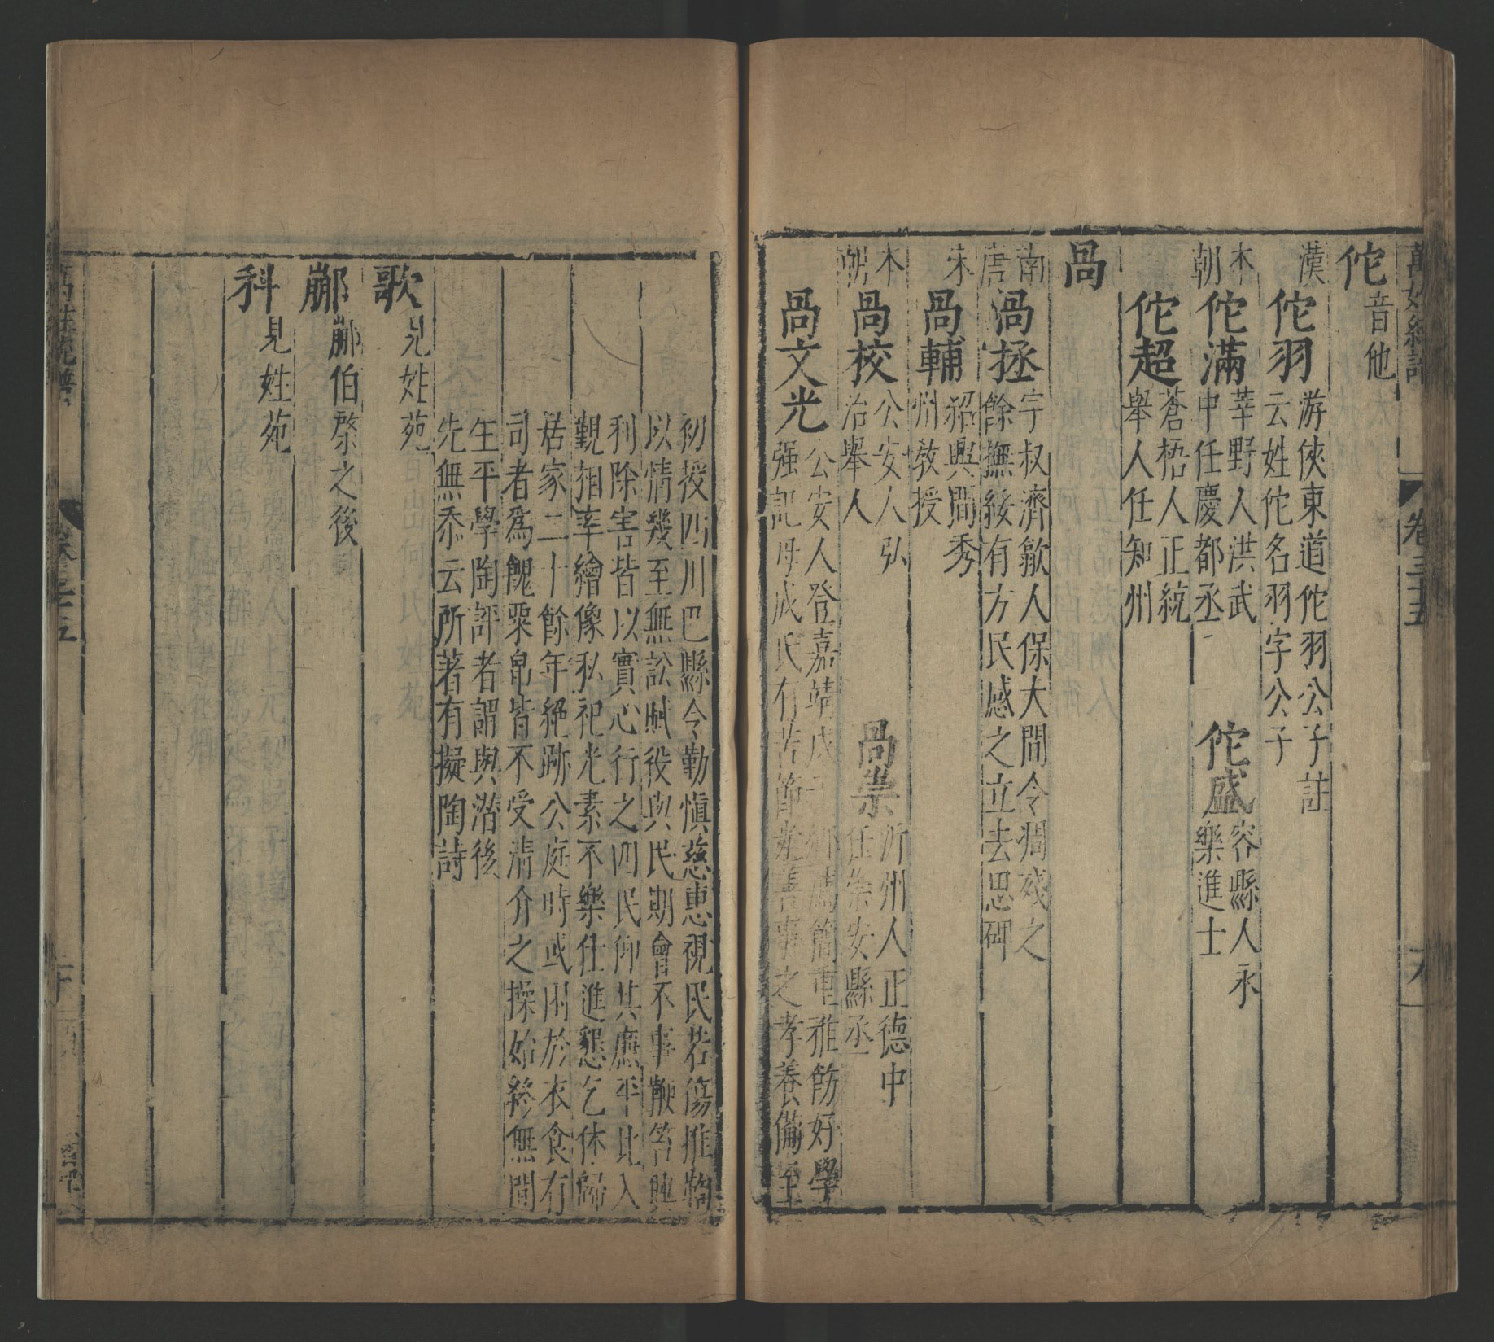 萬姓統譜
卷三十五
佗音他
漢
佗羽游俠東道佗羽公子註
云姓佗名羽字公子
本朝
佗滿莘野人洪武
中任慶都丞
佗盛容縣人永
樂進士
佗超蒼梧人正統
舉人任知州
咼
南唐
咼拯字叔濟歙人保大間令凋殘之
餘撫綏有方民感之立去思碑
宋
咼輔紹興間秀
州教授
本朝
咼校公安人弘
治舉人
咼崇沂州人正德中
任崇安縣丞
咼文光公安人登嘉靖戊子鄉薦簡重雅飭好學
强記母成氏有苦節光善事之孝養備至
初授四川巴縣令勤慎慈惠視民若傷推鞫
以情幾至無訟賦役與民期會不事鞭笞興
利除害皆以實心行之四民仰其廉平比入
覲相率繪像私祀光素不樂仕進懇乞休歸
居家二十餘年絕跡公庭時或困於衣食有
司者爲餽粟帛皆不受清介之操始終無間
生平學陶評者謂與潛後
先無忝云所著有擬陶詩
歌見姓苑
鄬鄬伯綮之後
科見姓苑
萬姓統譜
卷三十五